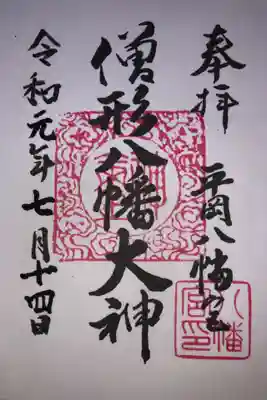 奉拝
平岡八幡宮
僧形八幡大神
令和元年七月十四日
八幡宮印